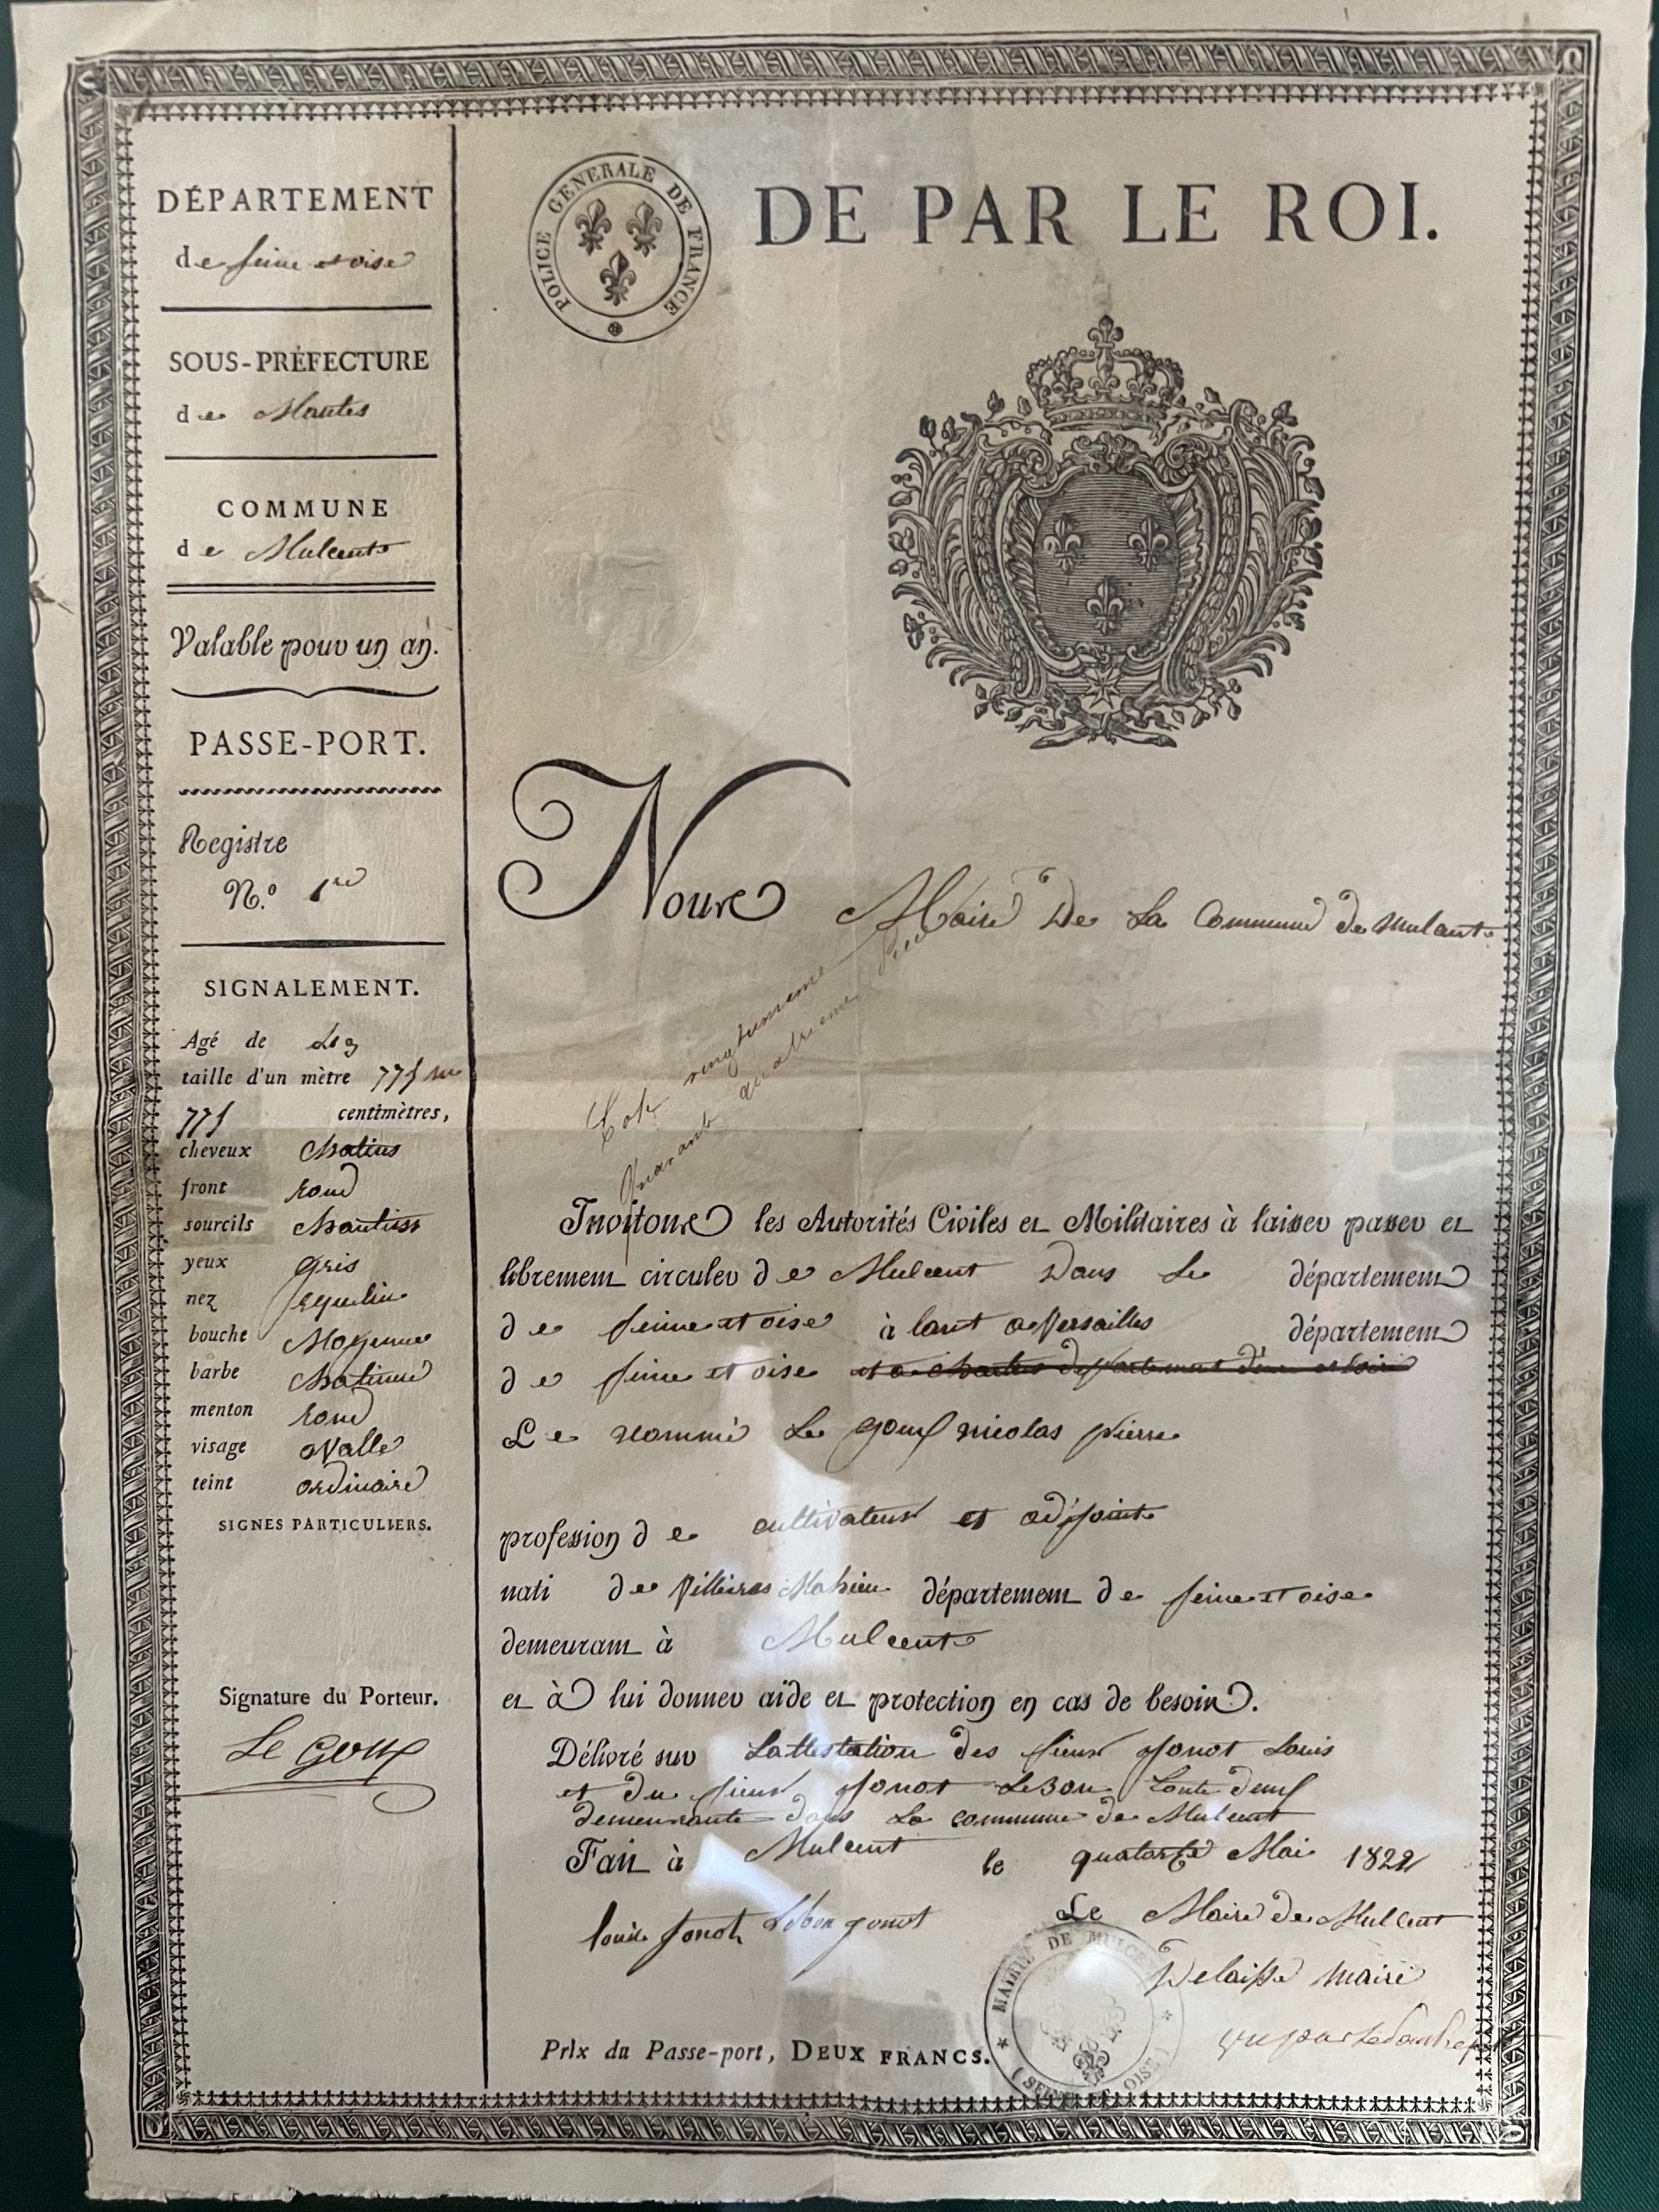 DÉPARTEMENT
de seine et oise
SOUS-PRÉFECTURE
de Mantes
COMMUNE
de Mulcent
Valable pour un an.
PASSE-PORT.
Registre
N.º 1re
SIGNALEMENT.
Agé de
taille d'un mètre 775 m
775 centimètres,
cheveux Chatins
front rond
sourcils
yeux gris
nez
bouche Moyenne
barbe Chatinne
menton rond
visage ovalle
teint ordinaire
SIGNES PARTICULIERS.
Signature du Porteur.
Le Goux
POLICE GENERALE DE FRANCE
DE PAR LE ROI.
Nous Maire De La Commune de Mulcent
Cote vingtunieme
Quarante quatrieme
Invitons les Autorités Civiles et Militaires à laisser passer et
librement circuler de Mulcent Dans Le département
de seine et oise à Versailles département
de seine et oise
Le nommé Le goux nicolas pierre
profession de cultivateur et adjoint
nati de Villiers Mahieu département de seine et oise
demeurant à Mulcent
et à lui donner aide et protection en cas de besoin.
Délivré sur Lattestation des sieur jonot Louis
et du sieur jonot Lebon toute deux
demeurante dans La commune de Mulcent
Fait à Mulcent le quatorze Mai 1822
Le Maire de Mulcent
louis jonot Lebon jonot
Delaisse maire
MAIRIE DE MULCENT
(SEINE ET OISE)
Prix du Passe-port, DEUX FRANCS.